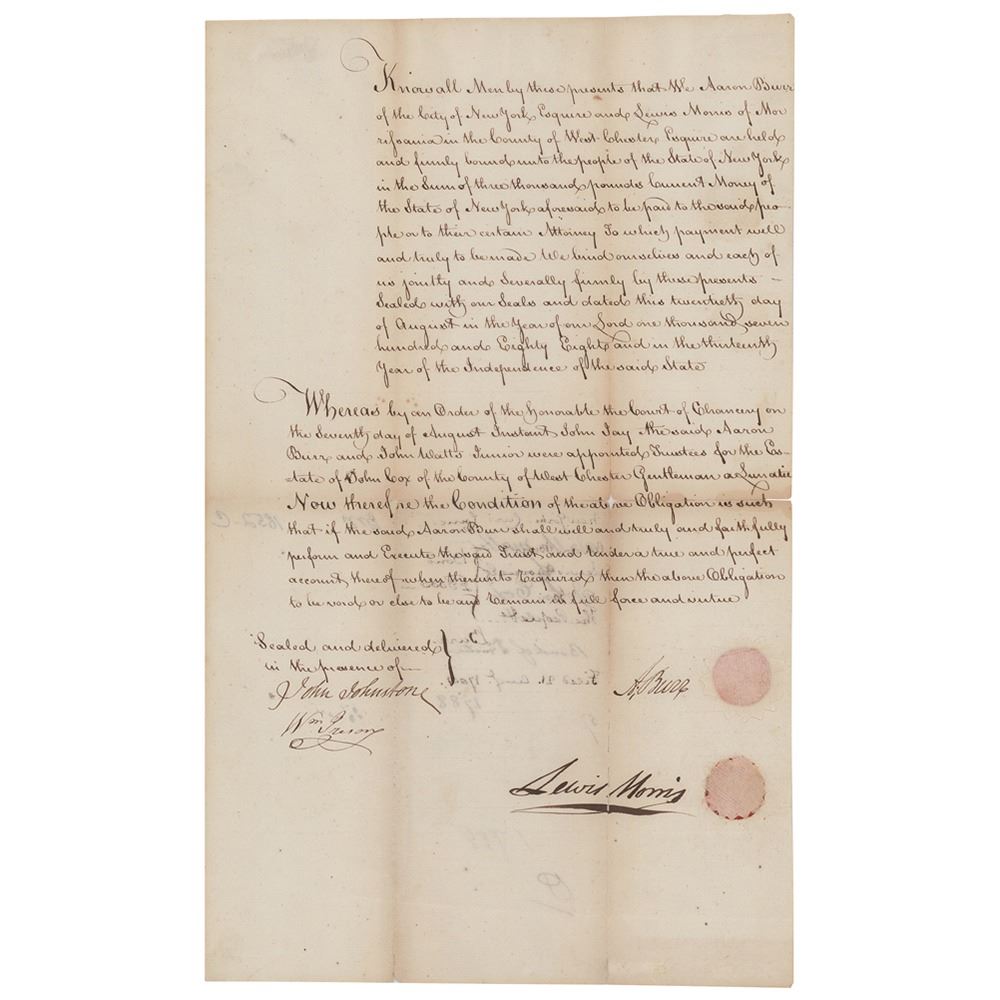 Know all Men by these presents that We Aaron Burr
of the City of New York Esquire and Lewis Morris of Mor
risania in the County of West-Chester Esquire are held
and firmly bound unto the people of the State of New York
in the Sum of three thousand pounds Current Money of
the State of New York aforesaid to be paid to the said peo-
ple or to their certain Attorney To which payment well
and truly to be made We bind ourselves and each of
us jointly and Severally firmly by these presents –
Sealed with our Seals and dated this twentieth day
of August in the Year of our Lord one thousand seven
hundred and Eighty Eight and in the thirteenth
Year of the Independence of the said State
Whereas by an Order of the Honorable the Court of Chancery on
the Seventh day of August Instant John Jay the said Aaron
Burr and John Watts Junior were appointed Trustees for the Es-
tate of John Cox of the County of West Chester Gentleman a Lunatic
Now therefore the Condition of the above Obligation is such
that if the said Aaron Burr shall well and truly and faithfully
perform and Execute the said Trust and render a true and perfect
account thereof when thereunto Required then the above Obligation
to be void or else to be and Remain in full force and virtue
Sealed and delivered
in the presence of
John Johnstone
Wm
A, Burr
Lewis Morris